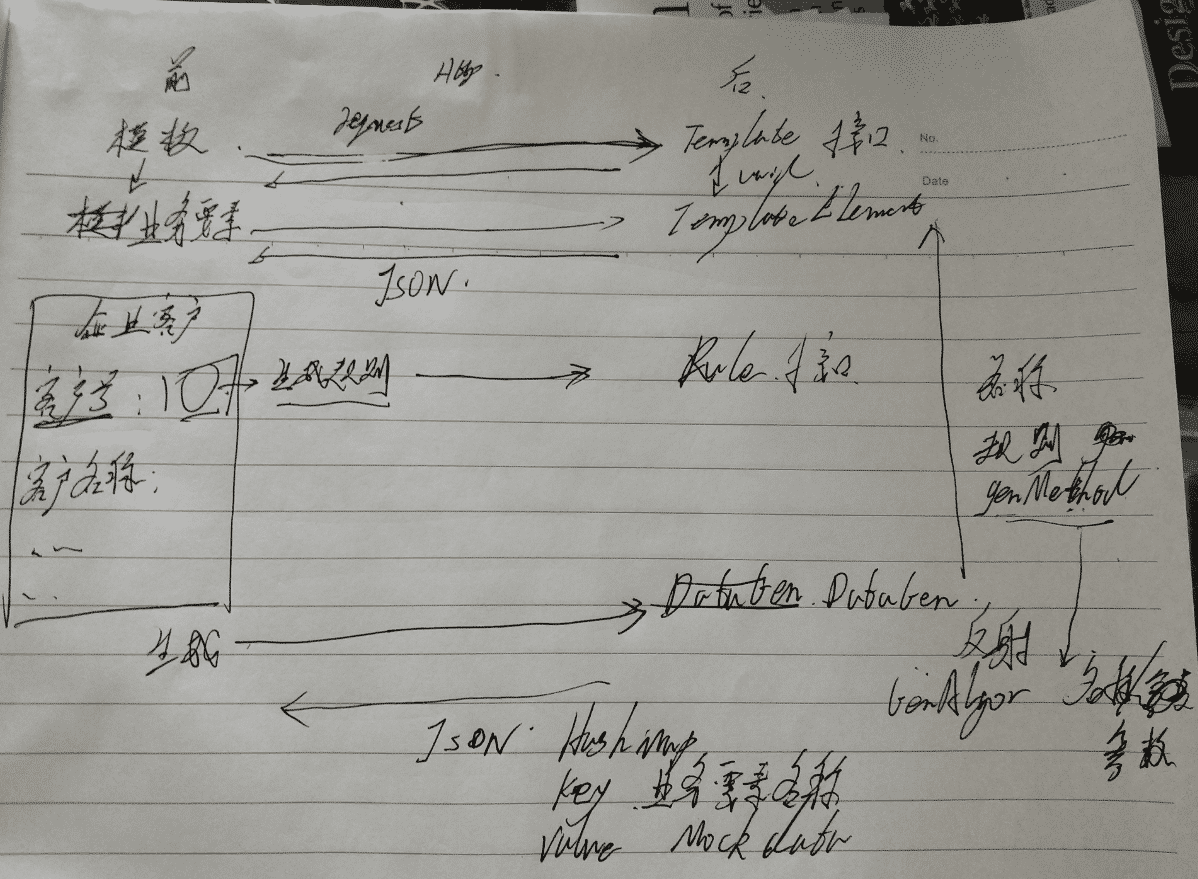 前 Http. 后.
模板. request Template 接口.
No.
Date
业务要素 TemplateElement
JSON.
企业客户
客户号: 生成规则 Rule 接口.
名称
规则
genMethod
客户名称:
...
...
DataGen. DataGen.
生成
反射
GenAlgor
参数
JSON. Hashimp
key 业务要素名称
value Mock data
Desig